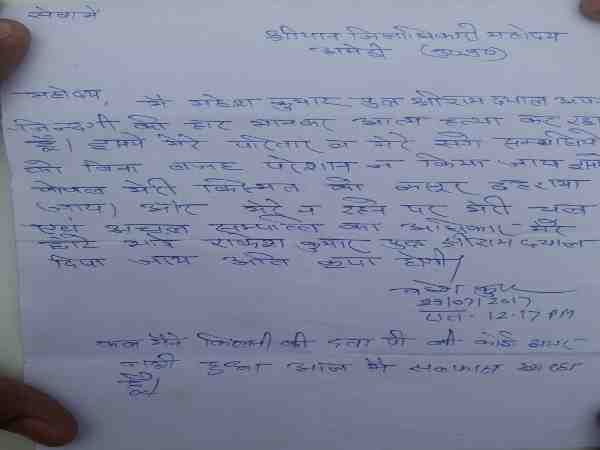 सेवा में
श्रीमान जिलाधिकारी महोदय
अमेठी (उ०प्र०)
महोदय, मैं महेश कुमार पुत्र श्रीराम दयाल अपने
जिन्दगी की हार मानकर आत्म हत्या कर रहा
हूँ। इसमें मेरे परिवार व मेरे सगे सम्बन्धियों
को बिना वजह परेशान न किया जाय इसमें
केवल मेरी किस्मत को कसूर ठहराया
(जाय) और मेरे न रहने पर मेरी चल
एवं अचल सम्पत्ति का अधिकार मेरे
छोटे भाई राकेश कुमार पुत्र श्रीराम दयाल
दिया जाय अति कृपा होगी/
महेश कुमार
/07/2017
रात- 12.17 PM
कल मैंने की दवा पी थी कोई असर
नहीं हुआ आज मैं सल्फास खा रहा
हूँ।